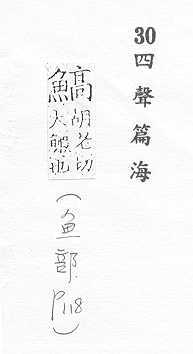 30四聲篇海
鰝
胡老切
大鰕也
(鱼部.P118)